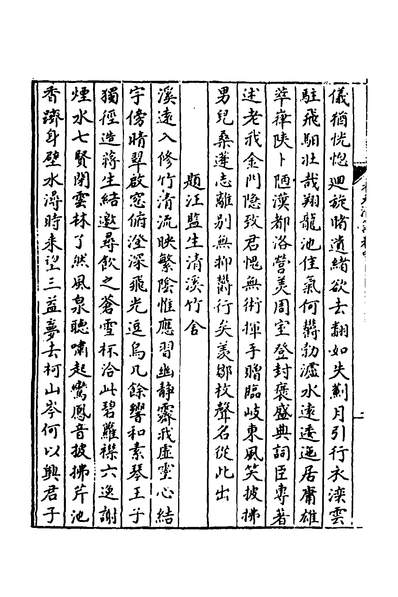 儀猶恍惚迴旋睹遺緒欲去翻如失薊月引行衣灤雲
駐飛駰壯哉翔龍池佳氣何鬱勃瀘水遠逶迤居庸雄
崒嵂陜卜陋漢都洛營羙周室登封褒盛典詞臣專著
述老我金門隐致君愧無術揮手贈臨岐東風笑披拂
男兒桑蓬志離别無抑鬱行矣羙鄒枚聲名從此出
題江監生清溪竹舍
溪遠入修竹清流映繁陰惟應習幽静霽我虚室心結
宇傍晴翠啟窓俯澄深飛光逗烏几餘響和素琴王子
獨徑造蔣生結邀尋飲之蒼雪杯洽此碧蘿襟六逸謝
煙水七賢閉雲林了然風泉聽嘯起鸞鳳音披拂芹池
香躋身璧水潯時来望三益夢去柯山岑何以興君子